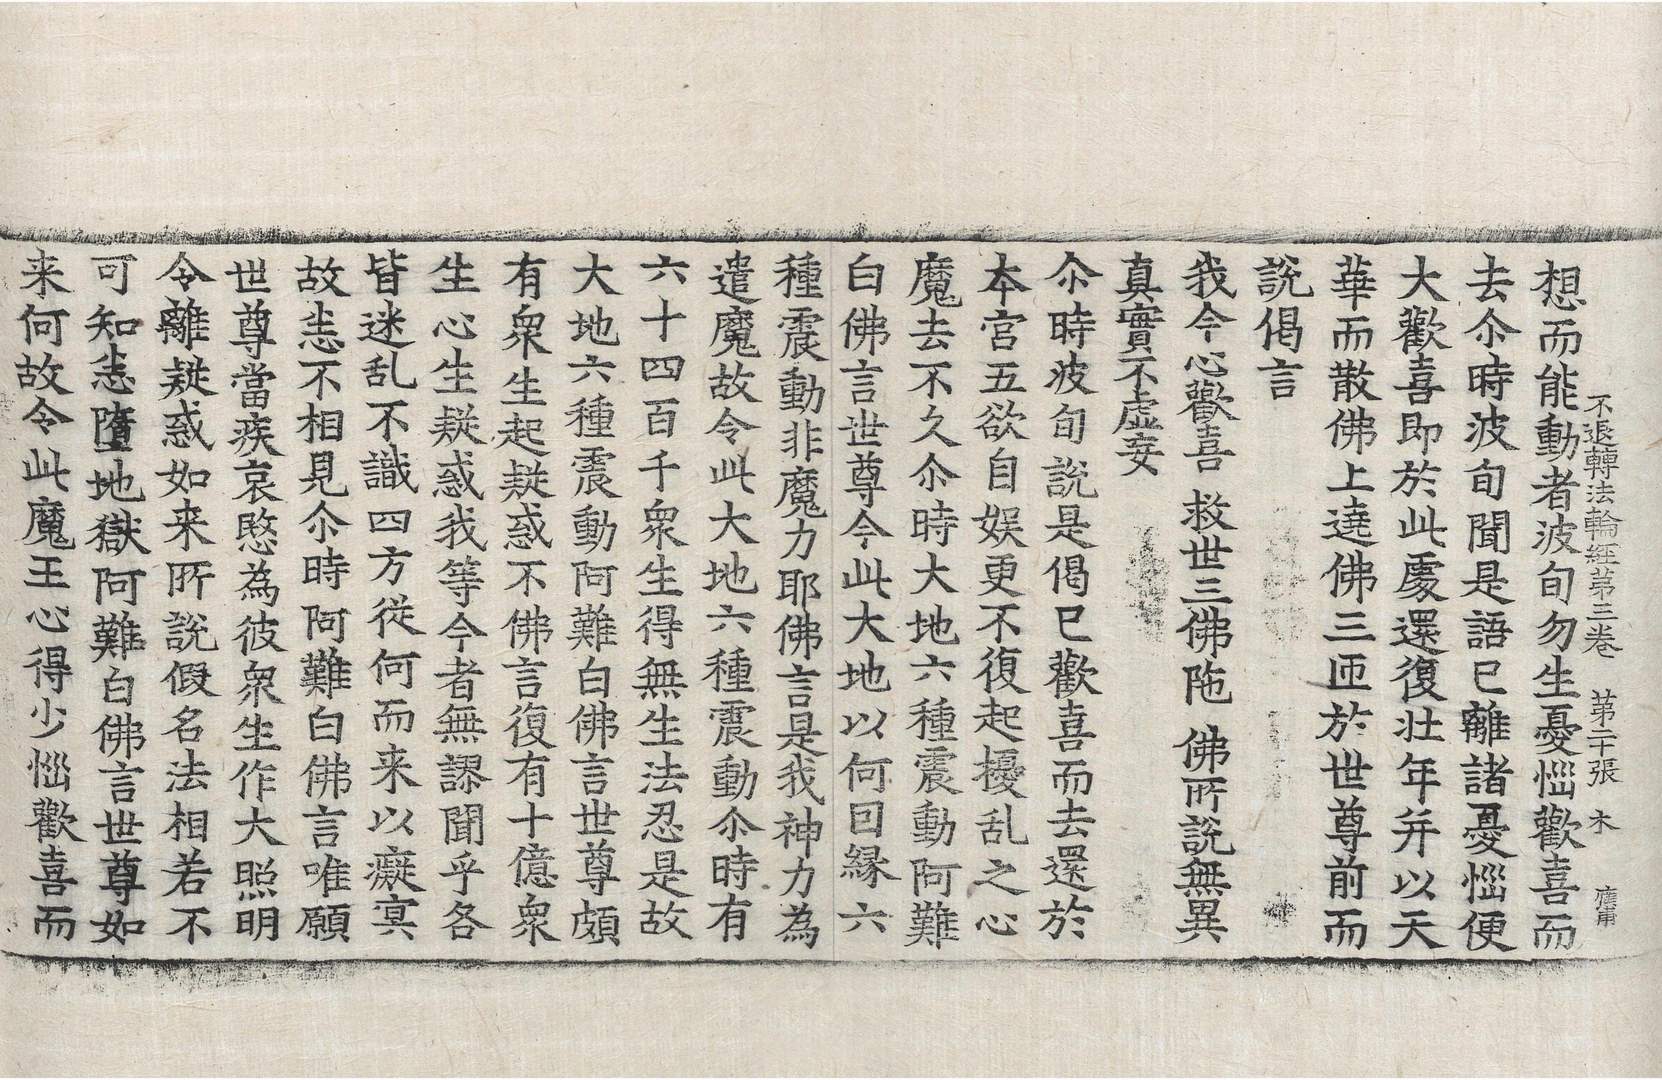 不退轉法輪經第三卷 第二十張 木
想而能動者波旬勿生憂惱歡喜而
去尒時波旬聞是語已離諸憂惱便
大歡喜即於此處還復壮年并以天
華而散佛上遶佛三匝於世尊前而
說偈言
我今心歡喜 救世三佛陁 佛所說無異
真實不虛妄
尒時波旬說是偈已歡喜而去還於
本宮五欲自娛更不復起擾乱之心
魔去不久尒時大地六種震動阿難
白佛言世尊今此大地以何因緣六
種震動非魔力耶佛言是我神力為
遣魔故令此大地六種震動尒時有
六十四百千衆生得無生法忍是故
大地六種震動阿難白佛言世尊頗
有衆生起疑惑不佛言復有十億衆
生心生疑惑我等今者無謬聞乎各
皆迷乱不識四方從何而来以癡冥
故恙不相見尒時阿難白佛言唯願
世尊當疾哀愍為彼衆生作大照明
令離疑惑如来所說假名法相若不
可知恙墮地獄阿難白佛言世尊如
来何故令此魔王心得少惱歡喜而